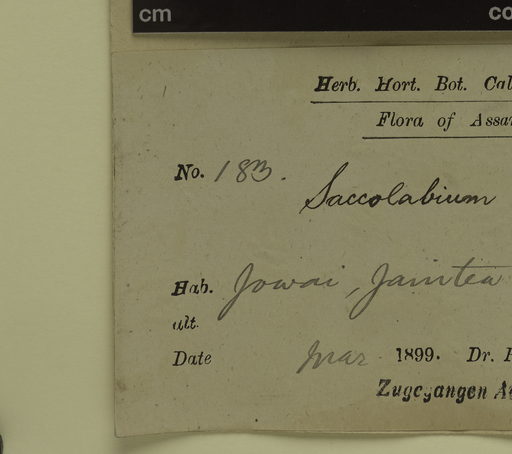 cm
Herb. Hort. Bot. Cal
Flora of Assa
No. 183.
Saccolabium
Hab. Jowai, Jaintea
alt.
Date Mar 1899. Dr.
Zugegangen